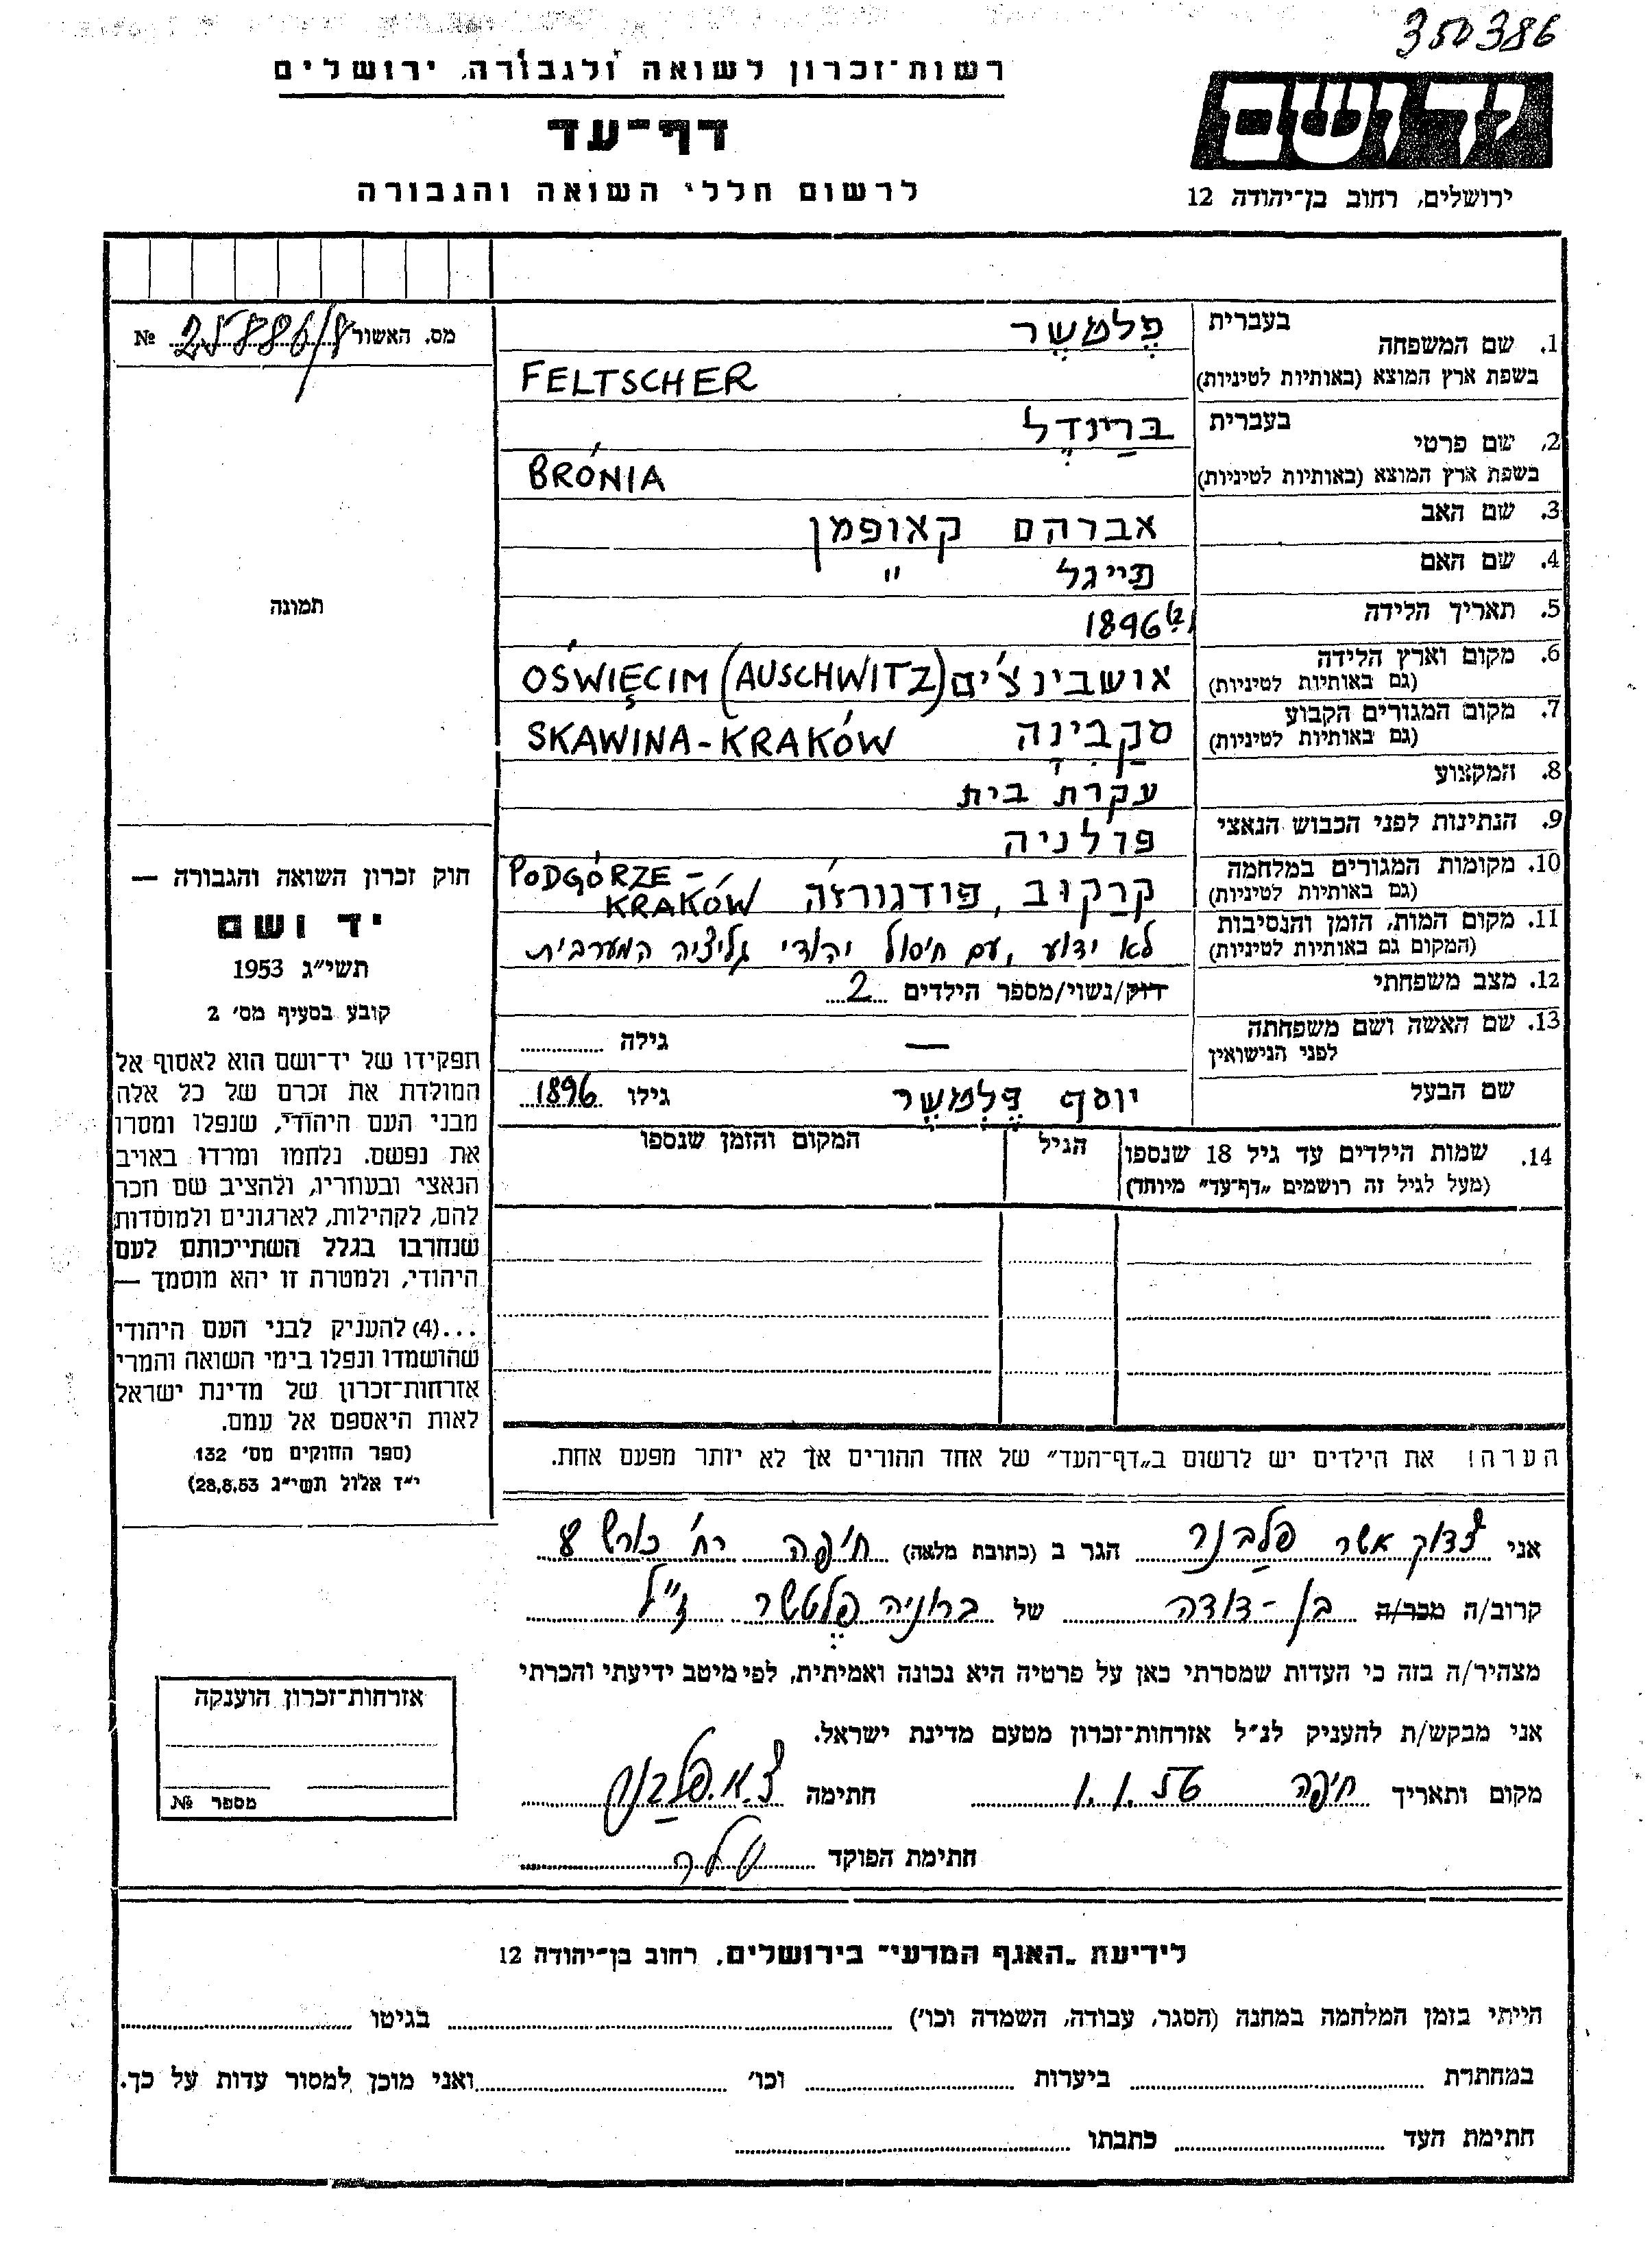 350386
רשות־זכרון לשואה ולגבורה, ירושלים
יד ושם
דף־עד
לרשום חללי השואה והגבורה
ירושלים, רחוב בן־יהודה 12
מס. האשור 25886/8 №
תמונה
1. שם המשפחה בעברית פֶלטשֶר
בשפת ארץ המוצא (באותיות לטיניות) FELTSCHER
2. שם פרטי בעברית בּרַיינְדֶל
בשפת ארץ המוצא (באותיות לטיניות) BRÓNIA
3. שם האב אברהם קאופמן
4. שם האם פייגל "
5. תאריך הלידה 1896
6. מקום וארץ הלידה (גם באותיות לטיניות) אושבינצ'ים OŚWIĘCIM (AUSCHWITZ)
7. מקום המגורים הקבוע (גם באותיות לטיניות) סקַבִינָה SKAWINA-KRAKÓW
8. המקצוע עקרת בית
9. הנתינות לפני הכבוש הנאצי פולניה
10. מקומות המגורים במלחמה (גם באותיות לטיניות) קרקוב, פודגורז'ה PODGÓRZE-KRAKÓW
11. מקום המות, הזמן והנסיבות (המקום גם באותיות לטיניות) לא ידוע, עם חיסול יהודי גליציה המערבית
12. מצב משפחתי רווק/נשוי/מספר הילדים 2
13. שם האשה ושם משפחתה לפני הנישואין — גילה
שם הבעל יוסף פֶלטשֶר גילו 1896
14. שמות הילדים עד גיל 18 שנספו הגיל המקום והזמן שנספו
(מעל לגיל זה רושמים „דף־עד” מיוחד)
הערה! את הילדים יש לרשום ב„דף־העד” של אחד ההורים אך לא יותר מפעם אחת.
חוק זכרון השואה והגבורה —
יד ושם
תשי״ג 1953
קובע בסעיף מס׳ 2
תפקידו של יד־ושם הוא לאסוף אל
המולדת את זכרם של כל אלה
מבני העם היהודי, שנפלו ומסרו
את נפשם. נלחמו ומרדו באויב
הנאצי ובעוזריו, ולהציב שם וזכר
להם, לקהילות, לארגונים ולמוסדות
שנחרבו בגלל השתייכותם לעם
היהודי, ולמטרה זו יהא מוסמך —
...(4) להעניק לבני העם היהודי
שהושמדו ונפלו בימי השואה והמרי
אזרחות־זכרון של מדינת ישראל
לאות היאספם אל עמם.
(ספר החוקים מס׳ 132
י״ז אלול תשי״ג 28.8.53)
אני צדוק אשר פלבנר הגר ב (כתובת מלאה) חיפה רח׳ כורש
קרוב/ה מכר/ה בן-דודה של ברוניה פֶלטשר ז״ל
מצהיר/ה בזה כי העדות שמסרתי כאן על פרטיה היא נכונה ואמיתית, לפי מיטב ידיעתי והכרתי
אני מבקש/ת להעניק לנ״ל אזרחות־זכרון מטעם מדינת ישראל.
מקום ותאריך חיפה 1.1.56 חתימה צ.א.פלבנר
חתימת הפוקד
אזרחות־זכרון הוענקה
מספר №
לידיעת „האגף המדעי” בירושלים, רחוב בן־יהודה 12
הייתי בזמן המלחמה במחנה (הסגר, עבודה, השמדה וכו׳) בגיטו
במחתרת ביערות וכו׳ ואני מוכן למסור עדות על כך.
חתימת העד כתבתו